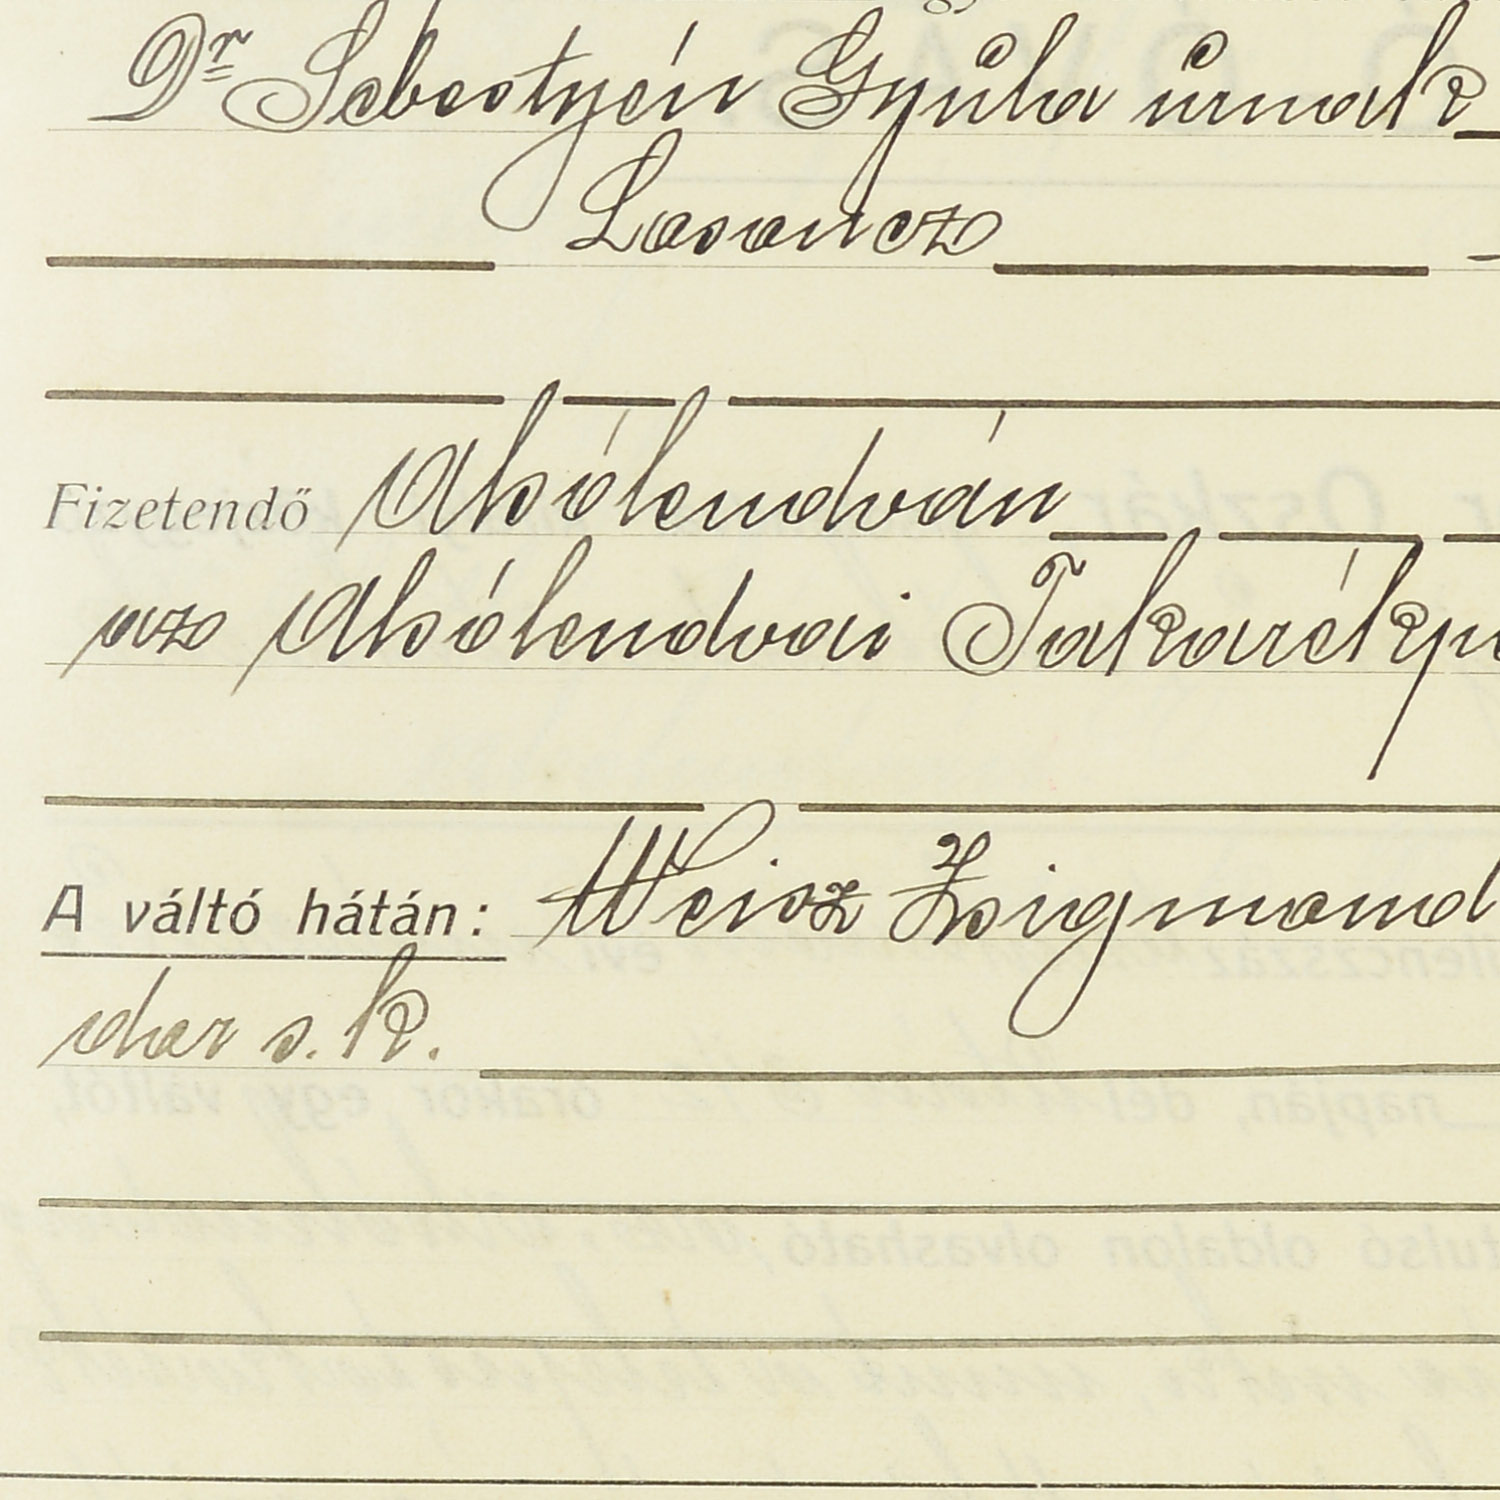 Dr Sebestyén Gyula úrnak
Losoncz
Fizetendő Alsólendván
az Alsólendvai Takarékp
A váltó hátán: Weisz Zsigmond
dler s. k.